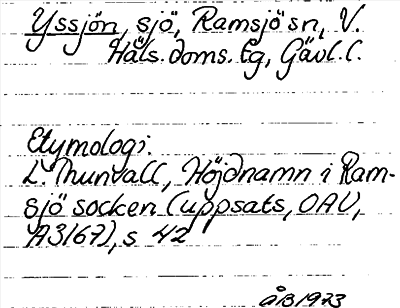 Yssjön, sjö, Ramsjö sn, V.
Häls. doms. tg, Gävl. l.
Etymologi:
L. Thunvall, Höjdnamn i Ram-
sjö socken (uppsats, OAU,
A3167), s 42
ÅB 1973